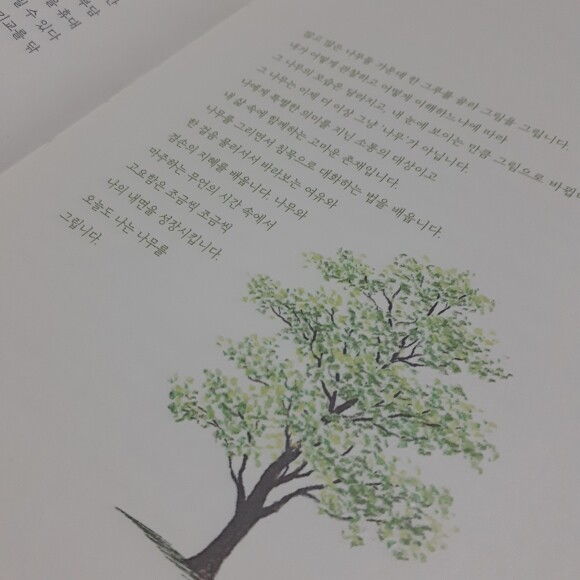 을 휴대
릴 수 있다
많고 많은 나무들 가운데 한 그루를 골라 그림을 그립니다.
내가 어떻게 관찰하고 어떻게 이해하느냐에 따라
그 나무의 모습은 달라지고, 내 눈에 보이는 만큼 그림으로 바뀝
그 나무는 이제 더 이상 그냥 '나무'가 아닙니다.
나에게 특별한 의미를 지닌 소통의 대상이고
내 삶 속에 함께하는 고마운 존재입니다.
나무를 그리면서 침묵으로 대화하는 법을 배웁니다.
한 걸음 물러서서 바라보는 여유와
겸손의 지혜를 배웁니다. 나무와
마주하는 무언의 시간 속에서
고요함은 조금씩 조금씩
나의 내면을 성장시킵니다.
오늘도 나는 나무를
그립니다.